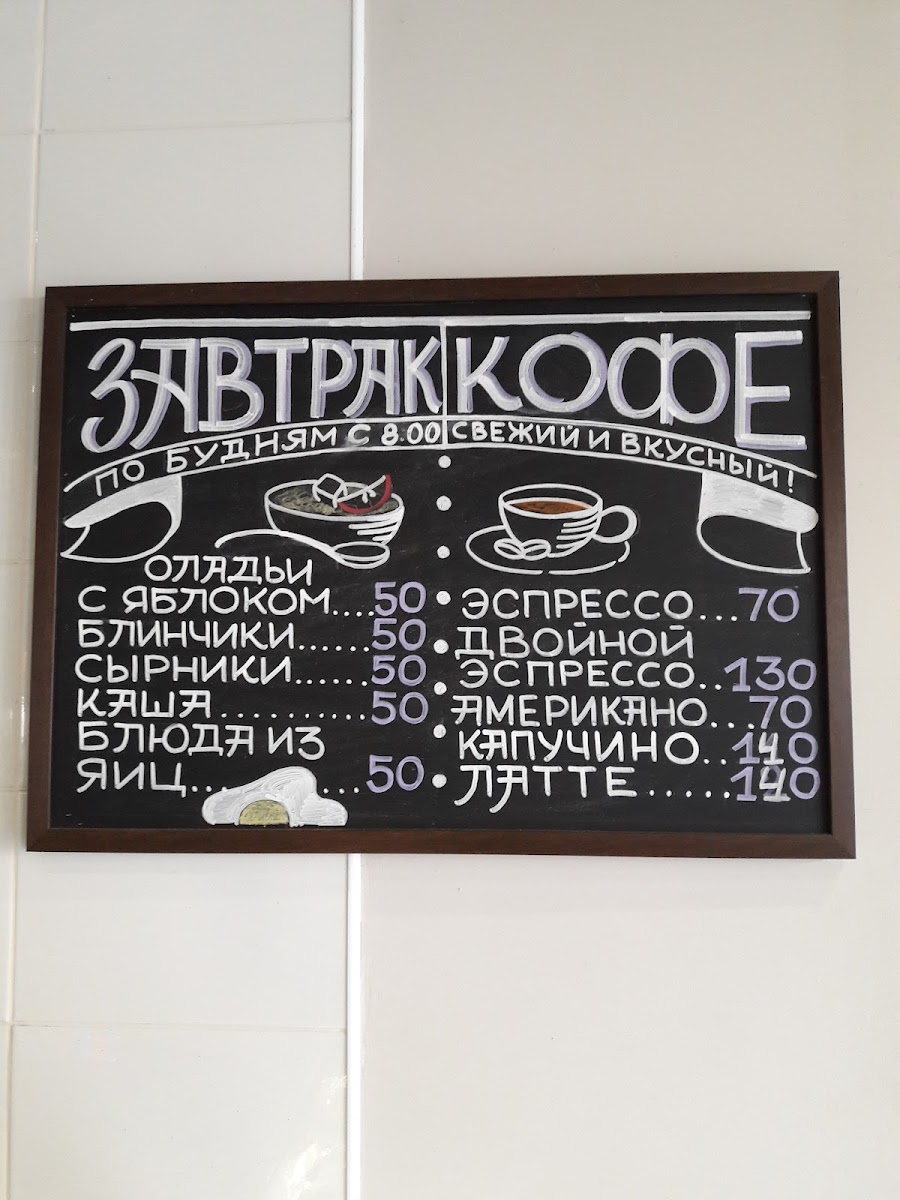 ЗАВТРАК
ПО БУДНЯМ С 8.00
ОЛАДЬИ
С ЯБЛОКОМ....50
БЛИНЧИКИ......50
СЫРНИКИ......50
КАША............50
БЛЮДА ИЗ
ЯИЦ.. ...50
КОФЕ
СВЕЖИЙ И ВКУСНЫЙ!
ЭСПРЕССО...70
ДВОЙНОЙ
ЭСПРЕССО..130
АМЕРИКАНО...70
КАПУЧИНО..140
ЛАТТЕ......140